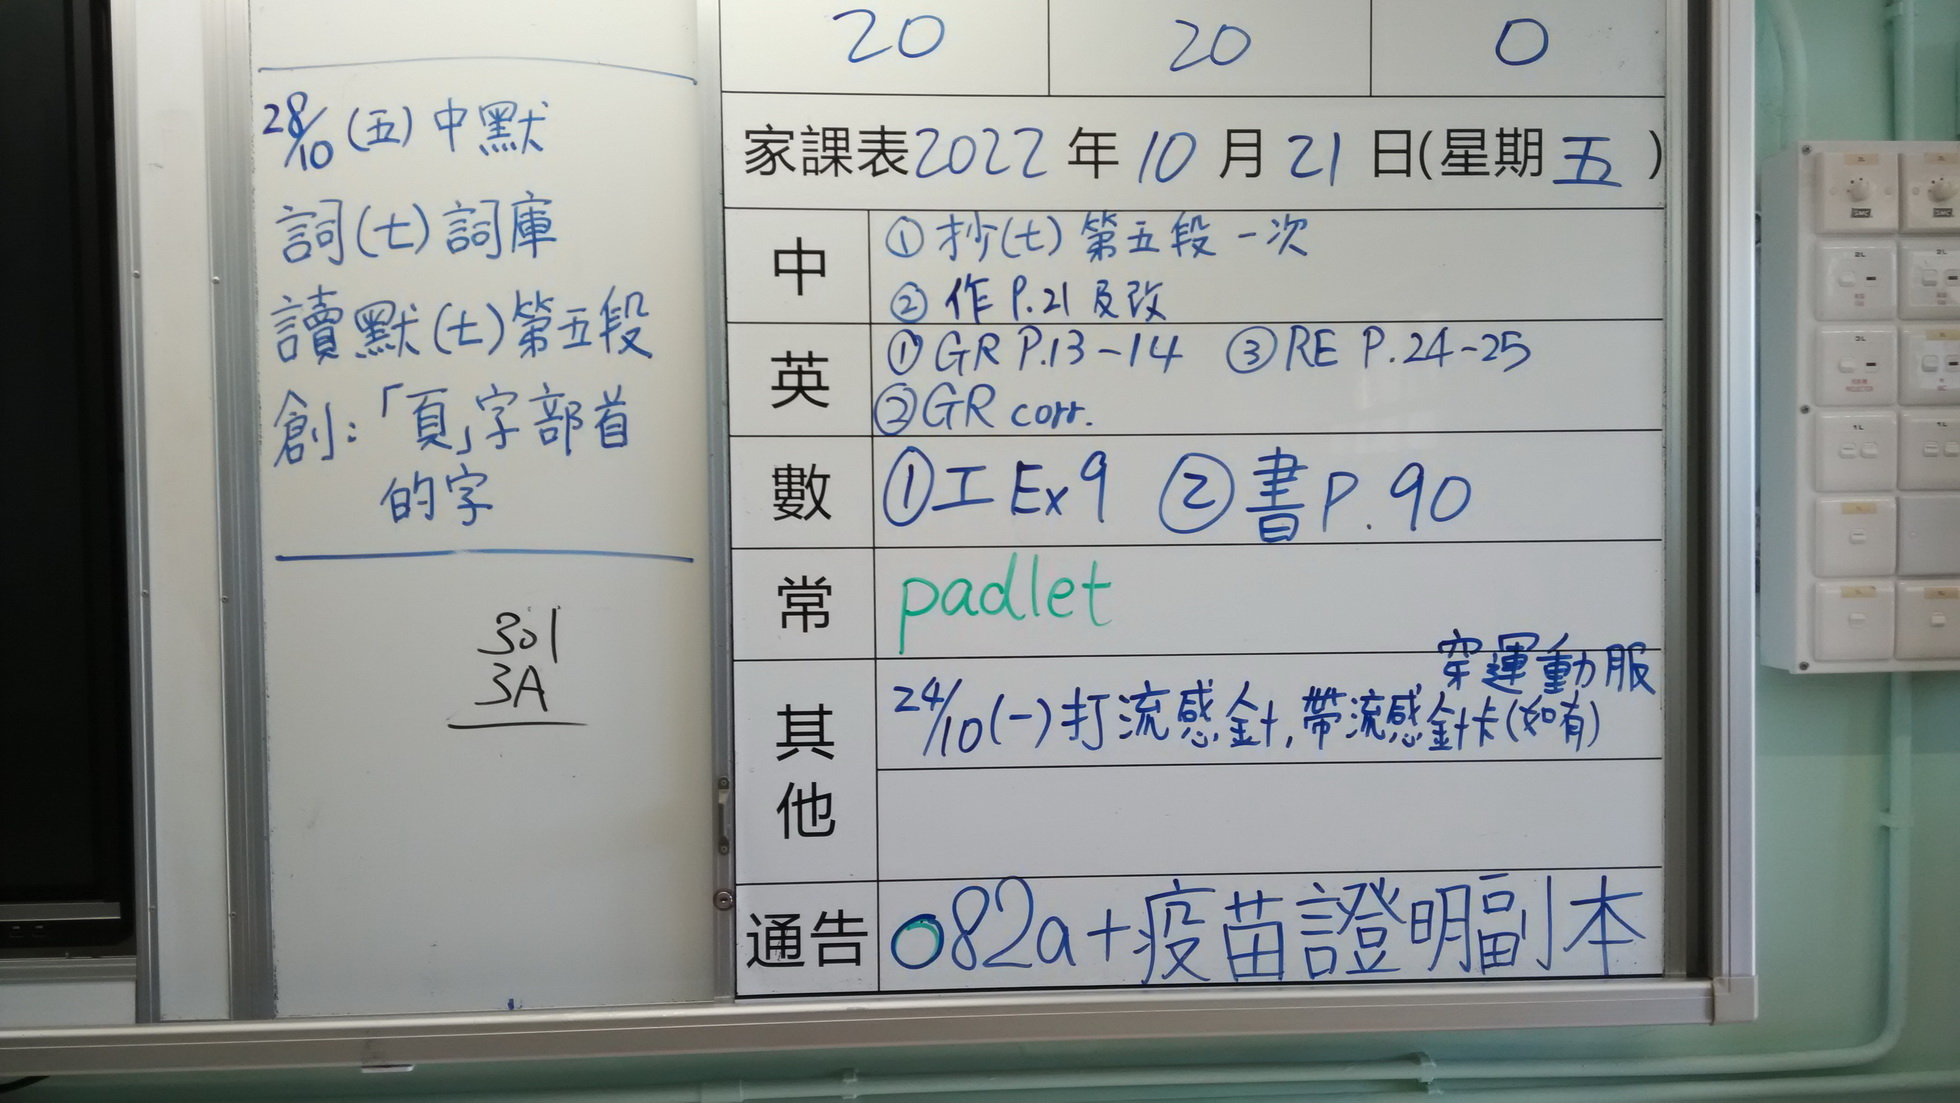 28/10 (五) 中默
詞(七)詞庫
讀默(七)第五段
創:「頁」字部首
的字
301
3A
20 20 0
家課表2022年10月21日(星期五)
中
①抄(七)第五段一次
②作P.21及改
英
①GR P.13-14 ③RE P.24-25
②GR corr.
數
①工Ex9 ②書P.90
常
padlet
其他
穿運動服
24/10(一)打流感針,帶流感針卡(如有)
通告
082a+疫苗證明副本